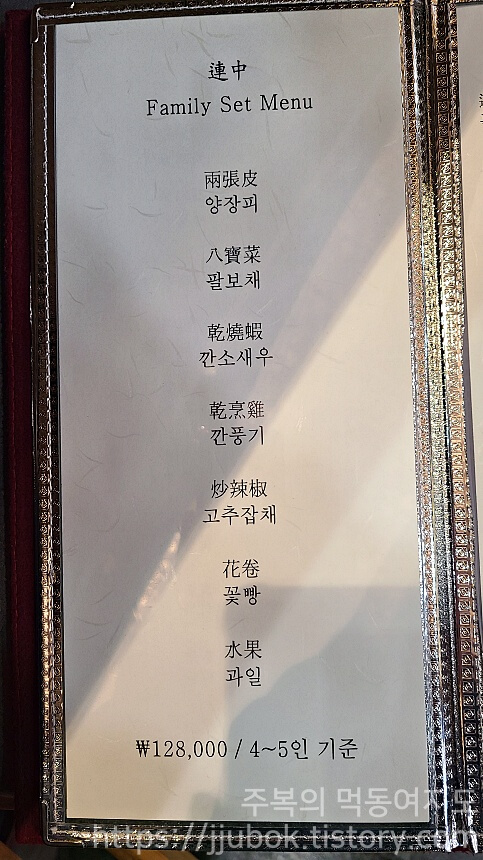 連中
Family Set Menu
兩張皮
양장피
八寶菜
팔보채
乾燒蝦
깐소새우
乾烹雞
깐풍기
炒辣椒
고추잡채
花卷
꽃빵
水果
과일
₩128,000 / 4~5인 기준
주복의 먹동여지도
https://jjubok.tistory.com